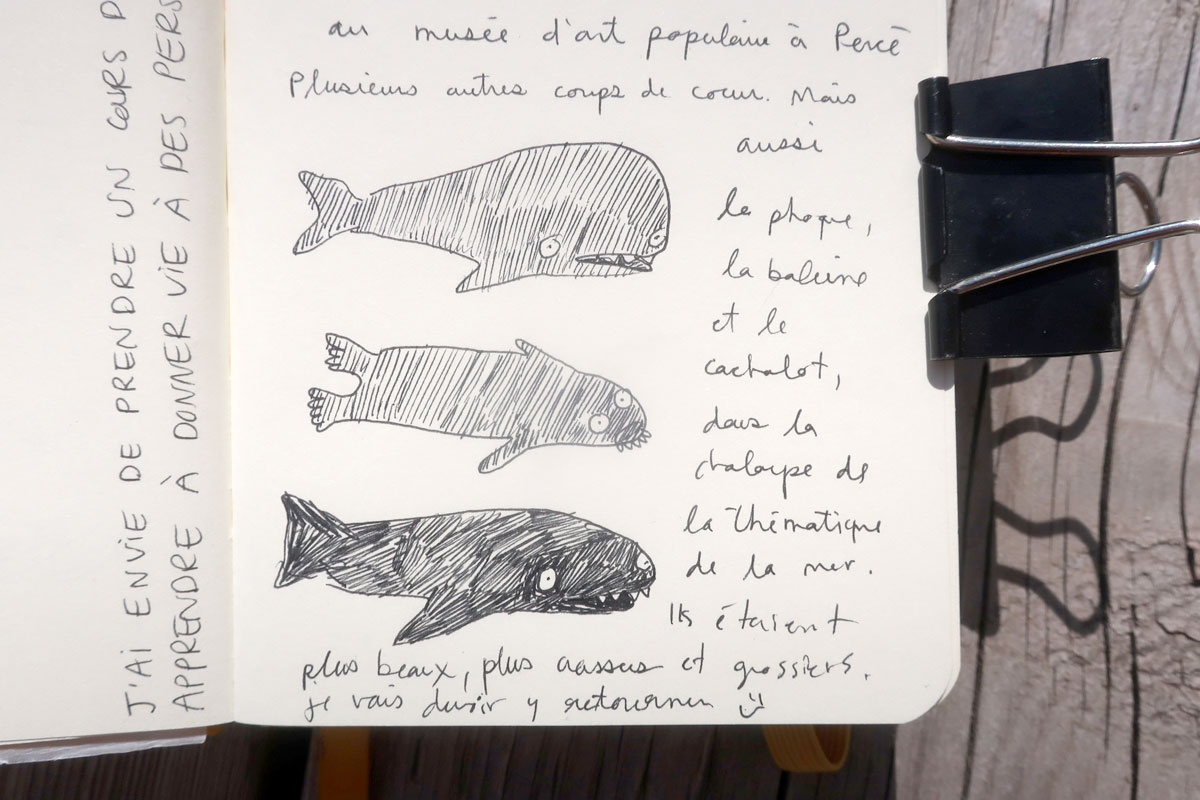 J'AI ENVIE DE PRENDRE UN COURS P
APPRENDRE À DONNER VIE À DES PERS
au musée d'art populaire à Percé
Plusieurs autres coups de coeur. Mais
aussi
le phoque,
la baleine
et le
cachalot,
dans la
chaloupe de
la thématique
de la mer.
Ils étaient
plus beaux, plus et grossiers.
je vais devoir y retourner